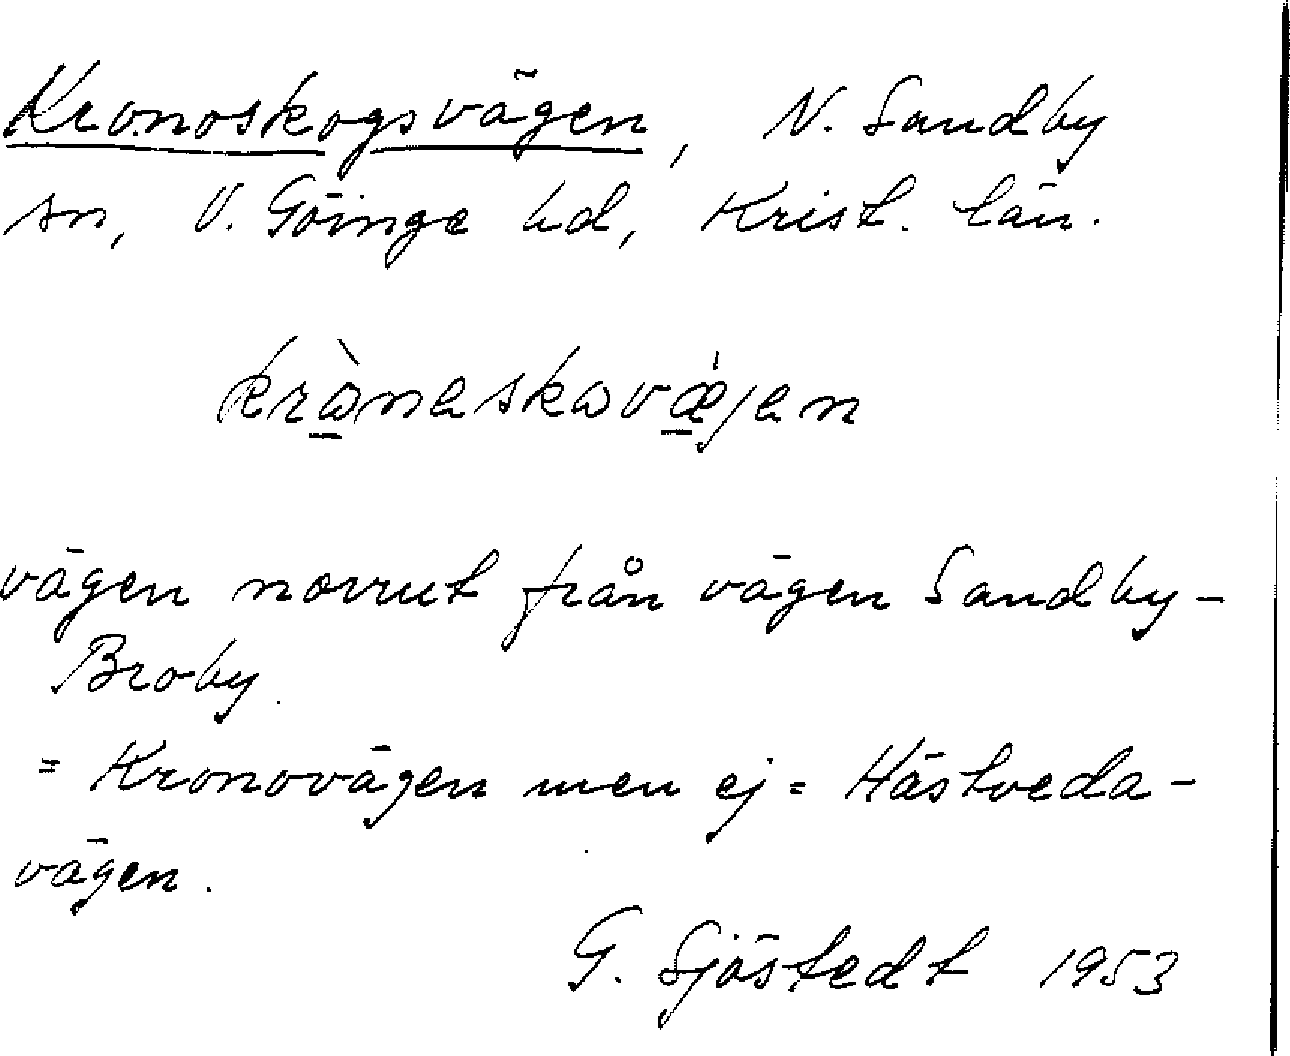 Kronoskogsvägen, N. Sandby
sn, V. Göinge hd, Krist. län.
krὼnəskωvæ̍jən
vägen norrut från vägen Sandby-
Broby.
= Kronovägen men ej = Hästveda-
vägen.
G. Sjöstedt 1953